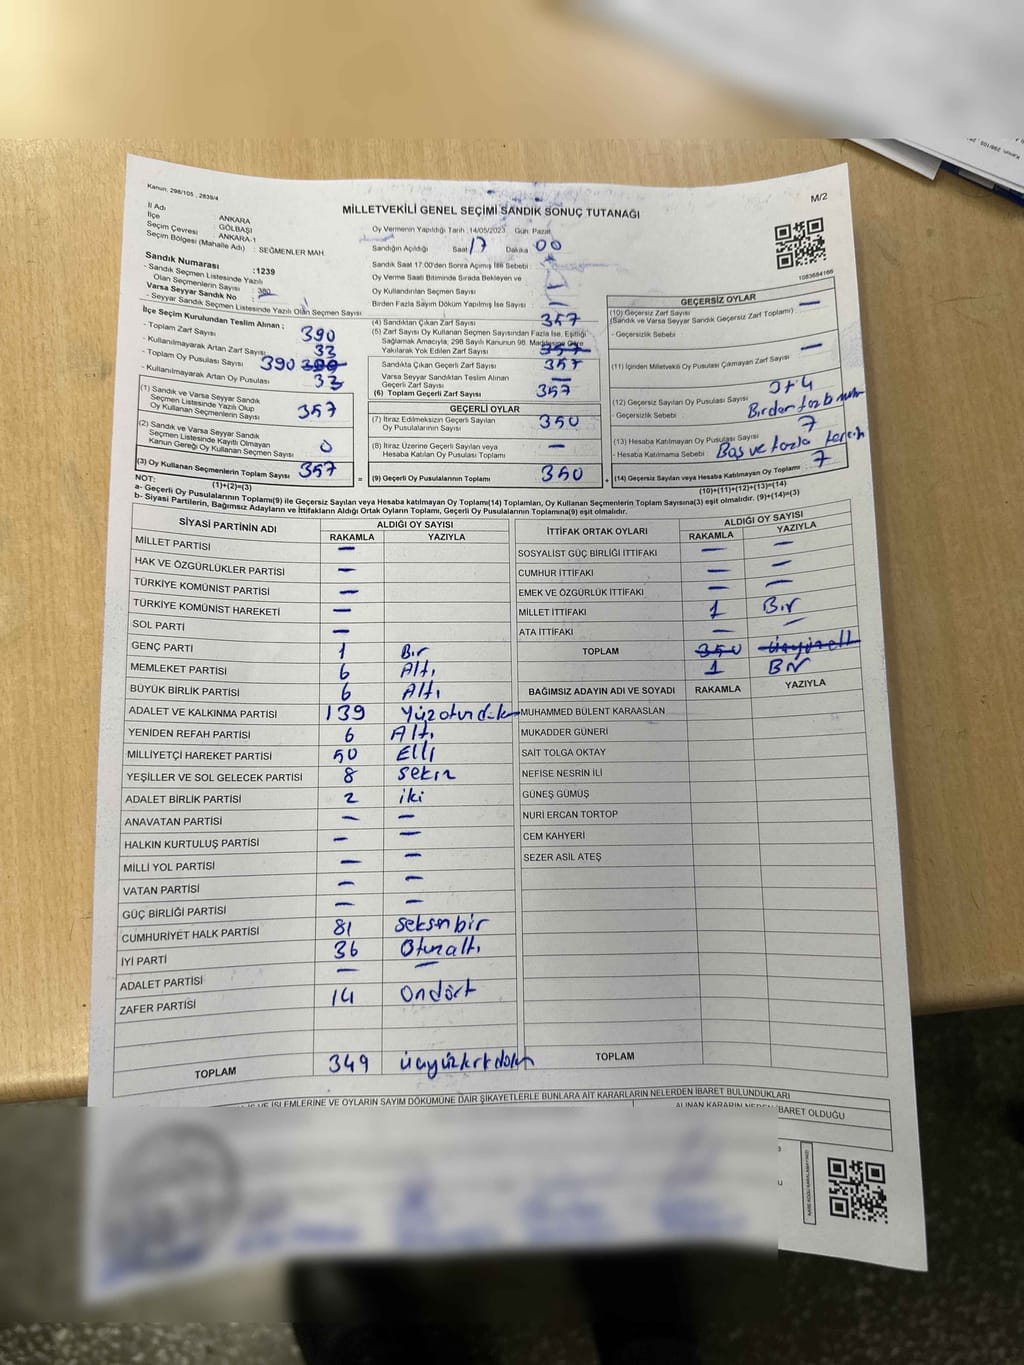 Kanun; 298/105 , 2839/4
M/2
MİLLETVEKİLİ GENEL SEÇİMİ SANDIK SONUÇ TUTANAĞI
İl Adı ANKARA
İlçe GÖLBAŞI
Seçim Çevresi ANKARA-1
Seçim Bölgesi (Mahalle Adı) : SEĞMENLER MAH.
Oy Vermenin Yapıldığı Tarih :14/05/2023 Gün: Pazar
Sandığın Açıldığı Saat 17 Dakika 00
Sandık Saat 17:00'den Sonra Açımış İse Sebebi
Oy Verme Saati Bitiminde Sırada Bekleyen ve
Oy Kullandırılan Seçmen Sayısı
Birden Fazla Sayım Döküm Yapılmış İse Sayısı
1083684166
Sandık Numarası :1239
- Sandık Seçmen Listesinde Yazılı
Olan Seçmenlerin Sayısı : 380
Varsa Seyyar Sandık No
- Seyyar Sandık Seçmen Listesinde Yazılı Olan Seçmen Sayısı
İlçe Seçim Kurulundan Teslim Alınan ;
- Toplam Zarf Sayısı 390
- Kullanılmayarak Artan Zarf Sayısı 33
- Toplam Oy Pusulası Sayısı 390 390
- Kullanılmayarak Artan Oy Pusulası 33
(1) Sandık ve Varsa Seyyar Sandık
Seçmen Listesinde Yazılı Olup
Oy Kullanan Seçmenlerin Sayısı 357
(2) Sandık ve Varsa Seyyar Sandık
Seçmen Listesinde Kayıtlı Olmayan
Kanun Gereği Oy Kullanan Seçmen Sayısı 0
(3) Oy Kullanan Seçmenlerin Toplam Sayısı 357
(1)+(2)=(3)
(4) Sandıktan Çıkan Zarf Sayısı 357
(5) Zarf Sayısı Oy Kullanan Seçmen Sayısından Fazla İse, Eşitliği
Sağlamak Amacıyla, 298 Sayılı Kanunun 98. Maddesine Göre
Yakılarak Yok Edilen Zarf Sayısı 357
Sandıkta Çıkan Geçerli Zarf Sayısı 357
Varsa Seyyar Sandıktan Teslim Alınan
Geçerli Zarf Sayısı —
(6) Toplam Geçerli Zarf Sayısı 357
GEÇERLİ OYLAR
(7) İtiraz Edilmeksizin Geçerli Sayılan
Oy Pusulalarının Sayısı 350
(8) İtiraz Üzerine Geçerli Sayılan veya
Hesaba Katılan Oy Pusulası Toplamı —
= (9) Geçerli Oy Pusulalarının Toplamı 350
GEÇERSİZ OYLAR
(10) Geçersiz Zarf Sayısı —
(Sandık ve Varsa Seyyar Sandık Geçersiz Zarf Toplamı)
- Geçersizlik Sebebi
(11) İçinden Milletvekili Oy Pusulası Çıkmayan Zarf Sayısı —
(12) Geçersiz Sayılan Oy Pusulası Sayısı
- Geçersizlik Sebebi
7
(13) Hesaba Katılmayan Oy Pusulası Sayısı
- Hesaba Katılmama Sebebi Boş ve fazla tercih
+ (14) Geçersiz Sayılan veya Hesaba Katılmayan Oy Toplamı 7
(10)+(11)+(12)+(13)=(14)
NOT:
a- Geçerli Oy Pusulalarının Toplamı(9) ile Geçersiz Sayılan veya Hesaba katılmayan Oy Toplamı(14) Toplamları, Oy Kullanan Seçmenlerin Toplam Sayısına(3) eşit olmalıdır. (9)+(14)=(3)
b- Siyasi Partilerin, Bağımsız Adayların ve İttifakların Aldığı Ortak Oyların Toplamı, Geçerli Oy Pusulalarının Toplamına(9) eşit olmalıdır.
SİYASİ PARTİNİN ADI ALDIĞI OY SAYISI
RAKAMLA YAZIYLA
MİLLET PARTİSİ —
HAK VE ÖZGÜRLÜKLER PARTİSİ —
TÜRKİYE KOMÜNİST PARTİSİ —
TÜRKİYE KOMÜNİST HAREKETİ —
SOL PARTİ —
GENÇ PARTİ 1 Bir
MEMLEKET PARTİSİ 6 Altı
BÜYÜK BİRLİK PARTİSİ 6 Altı
ADALET VE KALKINMA PARTİSİ 139
YENİDEN REFAH PARTİSİ 6 Altı
MİLLİYETÇİ HAREKET PARTİSİ 50 Elli
YEŞİLLER VE SOL GELECEK PARTİSİ 8 sekiz
ADALET BİRLİK PARTİSİ 2 iki
ANAVATAN PARTİSİ — —
HALKIN KURTULUŞ PARTİSİ — —
MİLLİ YOL PARTİSİ — —
VATAN PARTİSİ — —
GÜÇ BİRLİĞİ PARTİSİ — —
CUMHURİYET HALK PARTİSİ 81 seksenbir
İYİ PARTİ 36 Otuzaltı
ADALET PARTİSİ — —
ZAFER PARTİSİ 14 Ondört
TOPLAM 349
İTTİFAK ORTAK OYLARI ALDIĞI OY SAYISI
RAKAMLA YAZIYLA
SOSYALİST GÜÇ BİRLİĞİ İTTİFAKI — —
CUMHUR İTTİFAKI — —
EMEK VE ÖZGÜRLÜK İTTİFAKI — —
MİLLET İTTİFAKI 1 Bir
ATA İTTİFAKI — —
TOPLAM 350 üçyüzelli
1 Bir
BAĞIMSIZ ADAYIN ADI VE SOYADI RAKAMLA YAZIYLA
MUHAMMED BÜLENT KARAASLAN
MUKADDER GÜNERİ
SAİT TOLGA OKTAY
NEFİSE NESRİN İLİ
GÜNEŞ GÜMÜŞ
NURİ ERCAN TORTOP
CEM KAHYERİ
SEZER ASİL ATEŞ
TOPLAM
İŞLEMLERİNE VE OYLARIN SAYIM DÖKÜMÜNE DAİR ŞİKAYETLERLE BUNLARA AİT KARARLARIN NELERDEN İBARET BULUNDUKLARI
ALINAN KARARIN NEDEN İBARET OLDUĞU